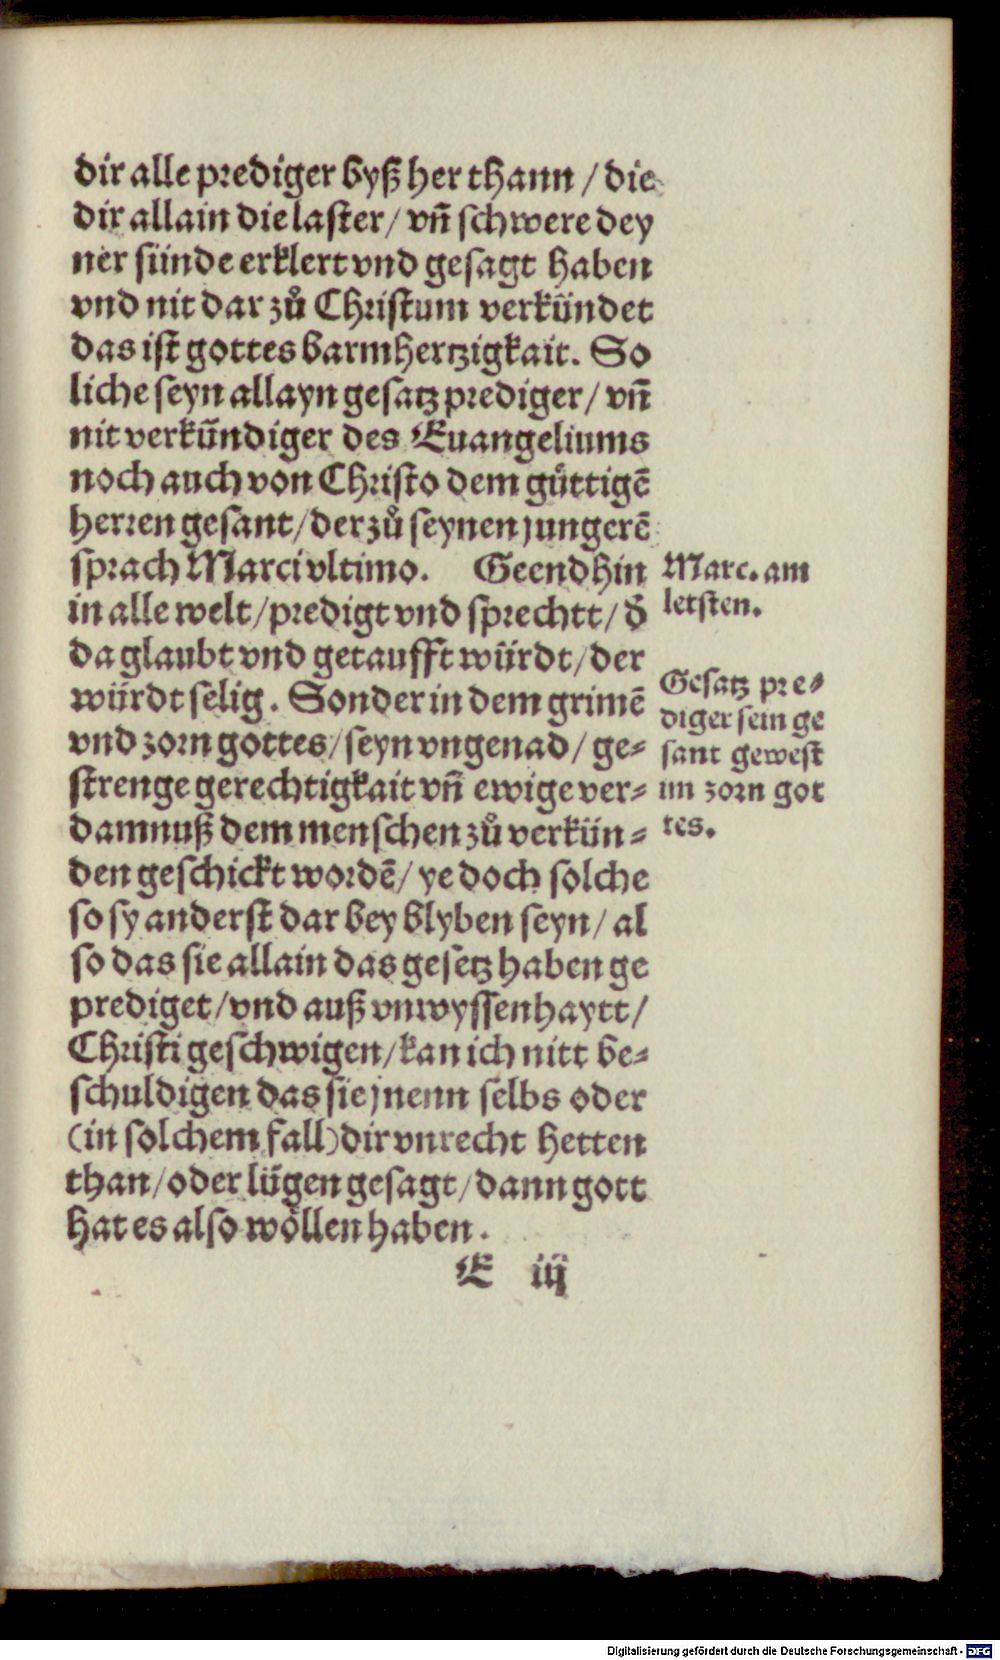 dir alle prediger byß her thann / die
dir allain die laster / vñ schwere dey
ner sünde erklert vnd gesagt haben
vnd nit dar zů Christum verkündet
das ist gottes barmhertzigkait. So
liche seyn allayn gesatz prediger / vñ
nit verkündiger des Euangeliums
noch auch von Christo dem gůttigẽ
herren gesant / der zů seynen jungerẽ
sprach Marci vltimo. Geend hin
in alle welt / predigt vnd sprechtt / d̓
da glaubt vnd getaufft würdt / der
würdt selig. Sonder in dem grimẽ
vnd zorn gottes / seyn vngenad / ge⸗
strenge gerechtigkait vñ ewige ver⸗
damnuß dem menschen zů verkün⸗
den geschickt wordẽ / ye doch solche
so sy anderst dar bey blyben seyn / al
so das sie allain das gesetz haben ge
prediget / vnd auß vnwyssenhaytt /
Christi geschwigen / kan ich nitt be⸗
schuldigen das sie jnenn selbs oder
(in solchem fall) dir vnrecht hetten
than / oder lügen gesagt / dann gott
hat es also wöllen haben.
E iij
Marc. am
letsten.
Gesatz pre⸗
diger sein ge
sant gewest
im zorn got
tes.
Digitalisierung gefördert durch die Deutsche Forschungsgemeinschaft - DFG